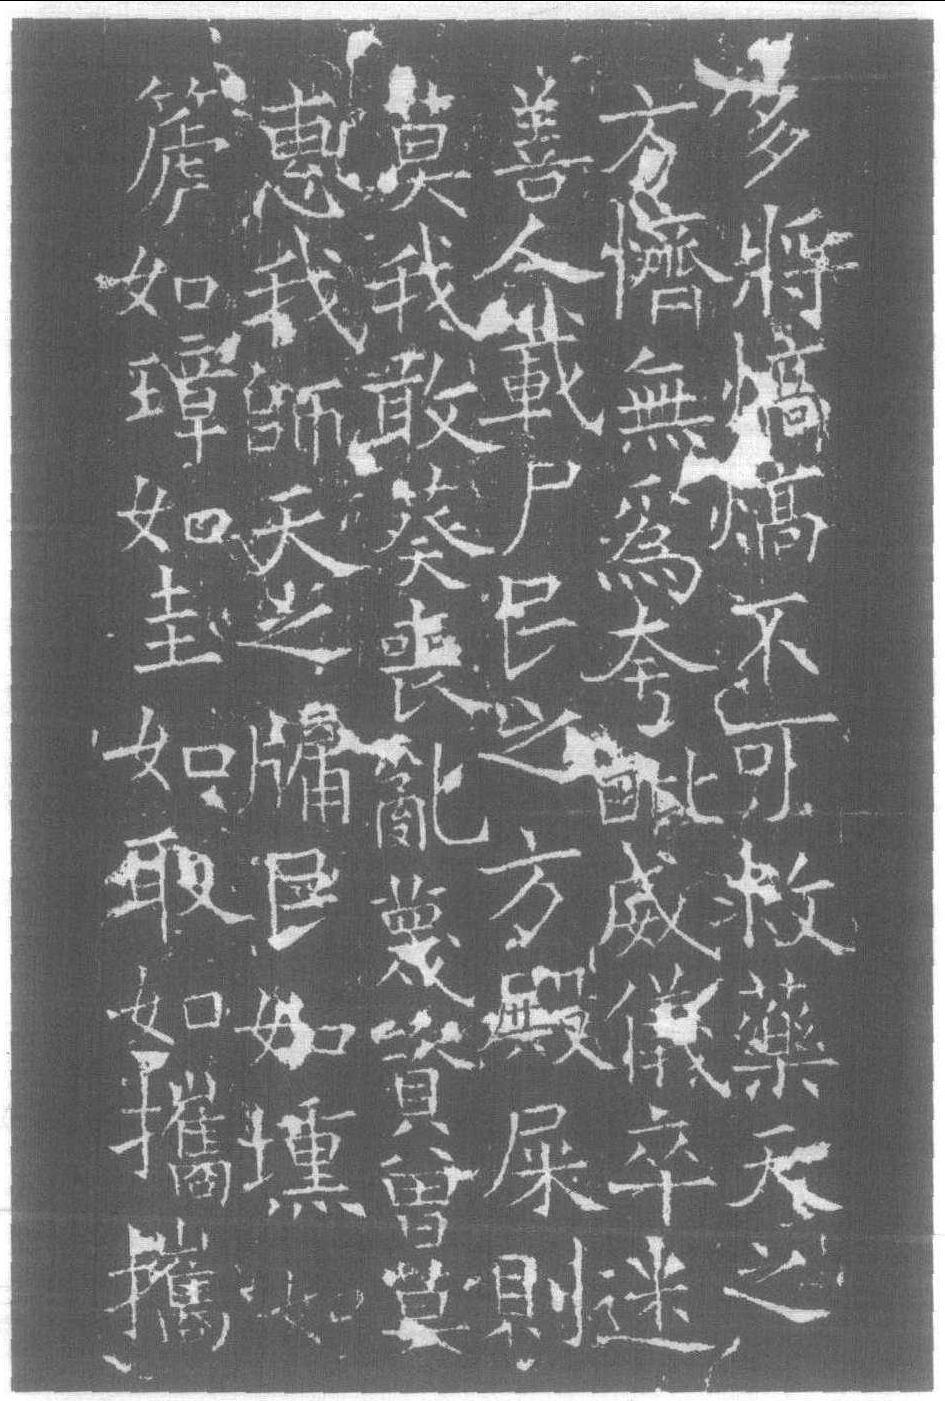 多將熇熇不可救藥天之
方懠無爲夸毗威儀卒迷
善人載尸民之方殿屎則
莫我敢葵喪亂蔑資曾莫
惠我師天之牖民如壎如
篪如璋如圭如取如攜攜